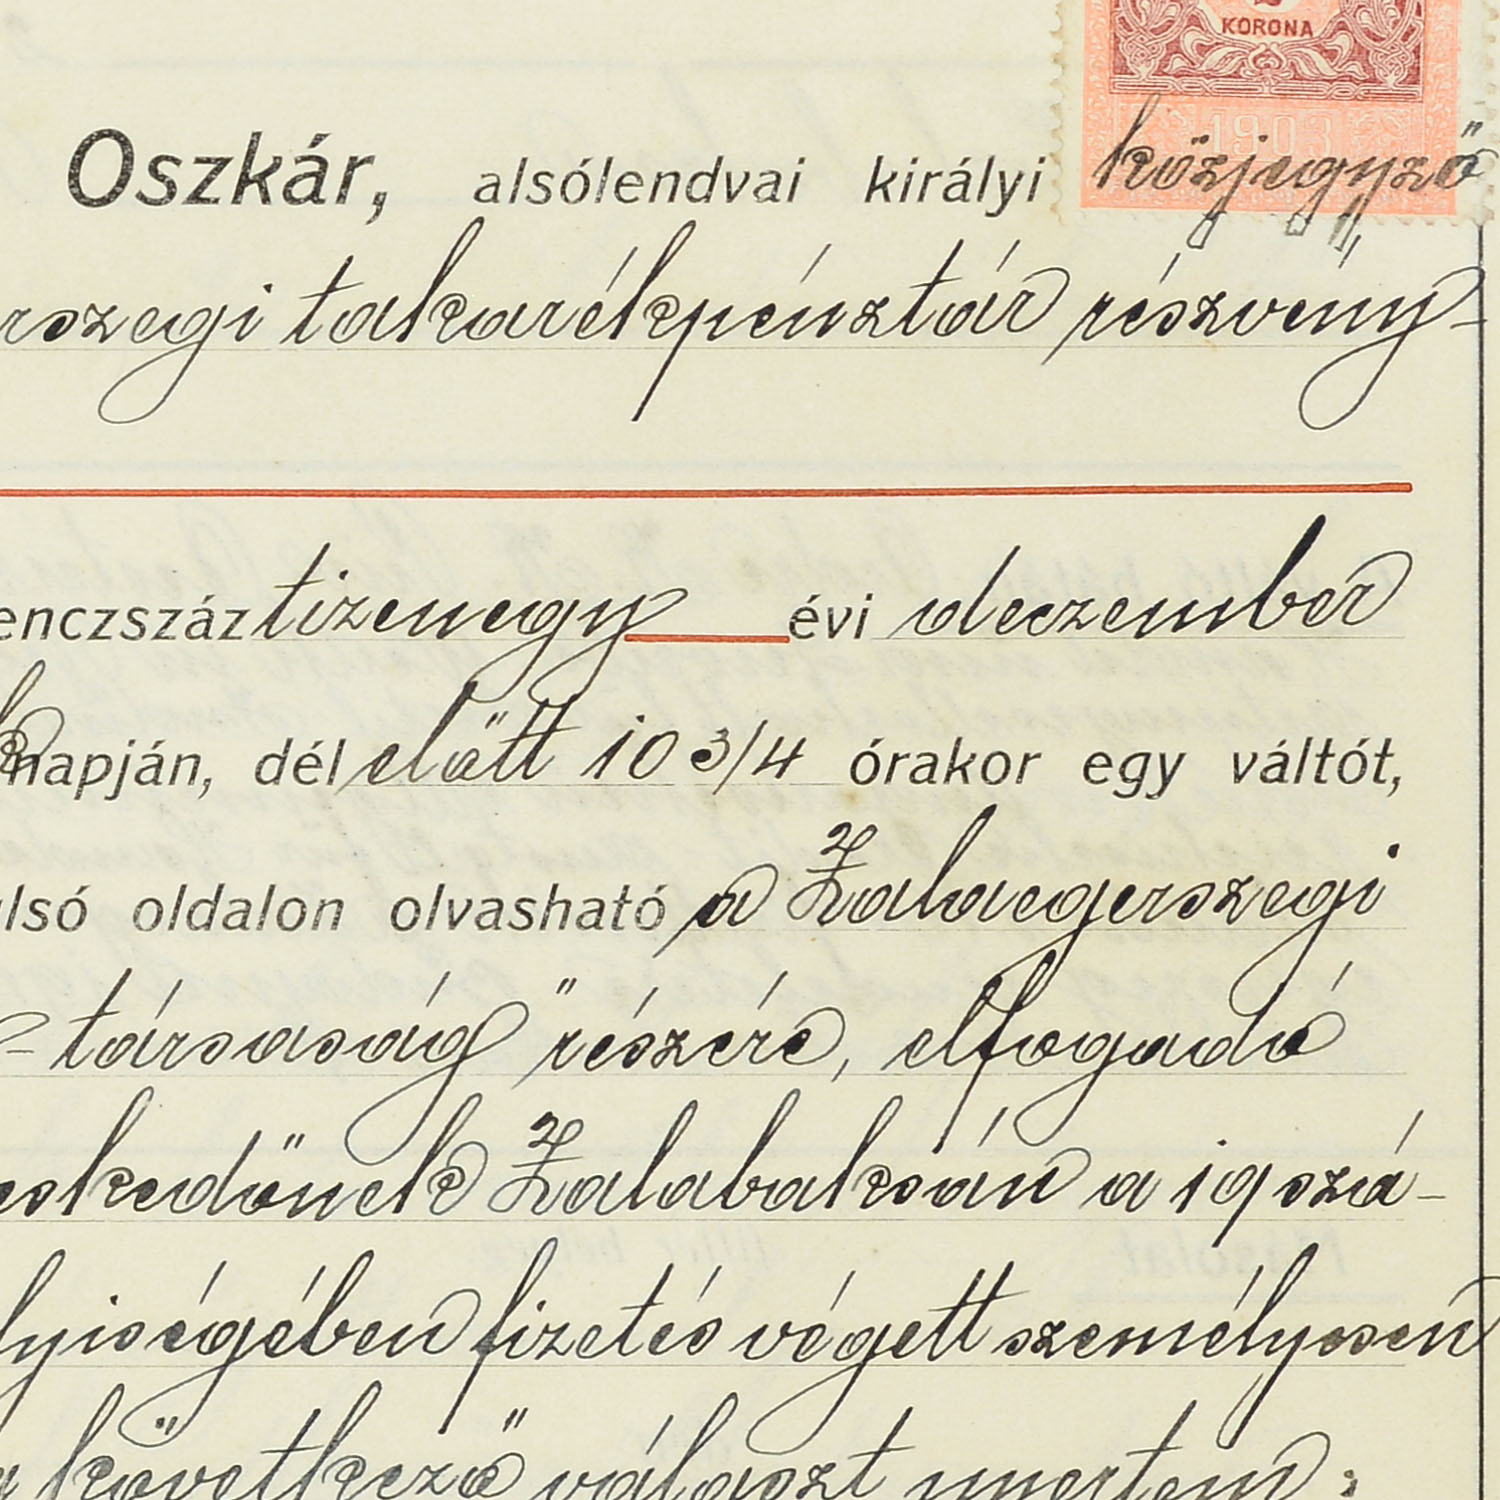 KORONA
1903
Oszkár, alsólendvai királyi közjegyző
rszegi takarékpénztár részvény-
enczszáz tizenegy évi deczember
napján, dél előtt 10 3/4 órakor egy váltót,
lsó oldalon olvasható a Zalaegerszegi
- társaság" részére, elfogadó
eskedőnek Zalabaksán a 19 szá-
lyiségében fizetés végett személyesen
következő választ nyertem: